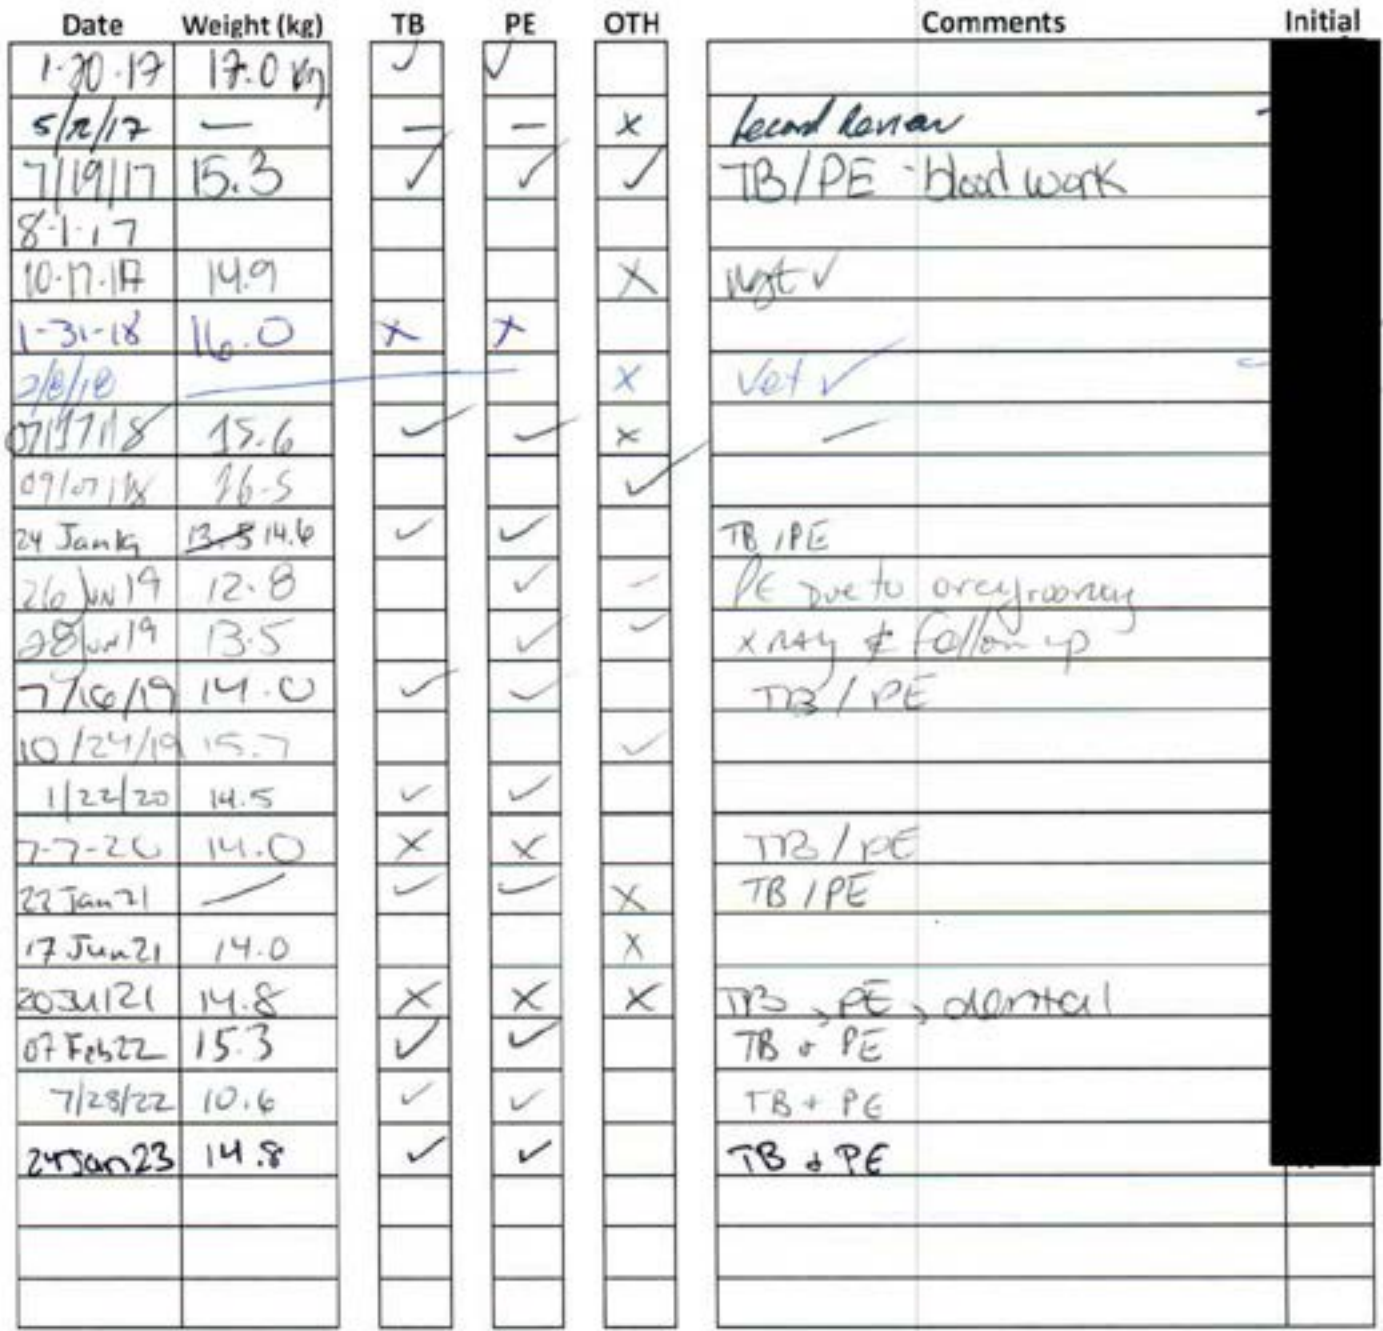 Date Weight (kg) TB PE OTH Comments Initial
1-30-17 17.0 kg ✓ ✓
5/12/17 — — — X Record Review
7/19/17 15.3 ✓ ✓ ✓ TB/PE - blood work
8-1-17
10-17-17 14.9 X wgt ✓
1-31-18 16.0 X X
2/8/18 — X Vet ✓
07/17/18 15.6 ✓ ✓ X —
09/07/18 16.5 ✓
24 Jan19 13.5 14.6 ✓ ✓ TB/PE
26Jun19 12.8 ✓ - PE Due to overgrooming
28Jun19 13.5 ✓ ✓ xray & follow up
7/16/19 14.0 ✓ ✓ TB/PE
10/24/19 15.7 ✓
1/22/20 14.5 ✓ ✓
7-7-20 14.0 X X TB/PE
22 Jan 21 — ✓ ✓ X TB/PE
17 Jun21 14.0 X
20Jul21 14.8 X X X TB, PE, dental
07 Feb22 15.3 ✓ ✓ TB + PE
7/28/22 10.6 ✓ ✓ TB + PE
24Jan23 14.8 ✓ ✓ TB & PE